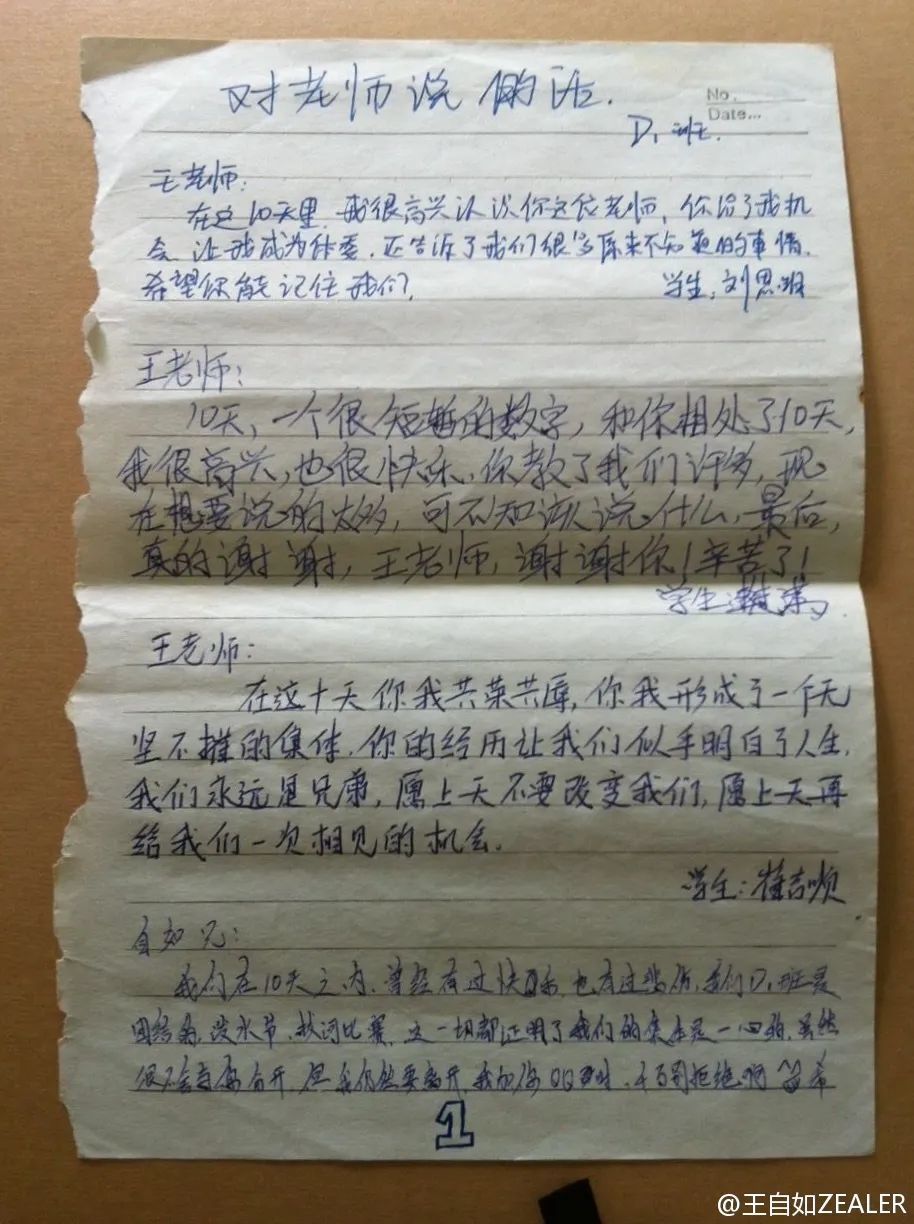 对老师说的话.
No.
Date...
D1班.
王老师:
在这10天里,我很高兴认识你这位老师,你给了我机
会,让我成为体委,还告诉了我们很多原来不知道的事情.
希望你能记住我们,
学生:刘思
王老师:
10天,一个很短暂的数字,和你相处了10天,
我很高兴,也很快乐,你教了我们许多,现
在想要说的太多,可不知该说什么,最后,
真的谢谢,王老师,谢谢你!辛苦了!
学生:
王老师:
在这十天你我共荣共辱,你我形成了一个无
坚不摧的集体,你的经历让我们似乎明白了人生,
我们永远是兄弟,愿上天不要改变我们,愿上天再
给我们一次相见的机会.
学生:崔吉顺
自如兄:
我们在10天之内,曾经有过快乐,也有过悲伤,我们D1班是
团结的,泼水节,拔河比赛,这一切都证明了我们的集体是一心的,虽然
很不舍离开,但我仍然要离开,我加你QQ时,千万别拒绝啊 希
1
@王自如ZEALER